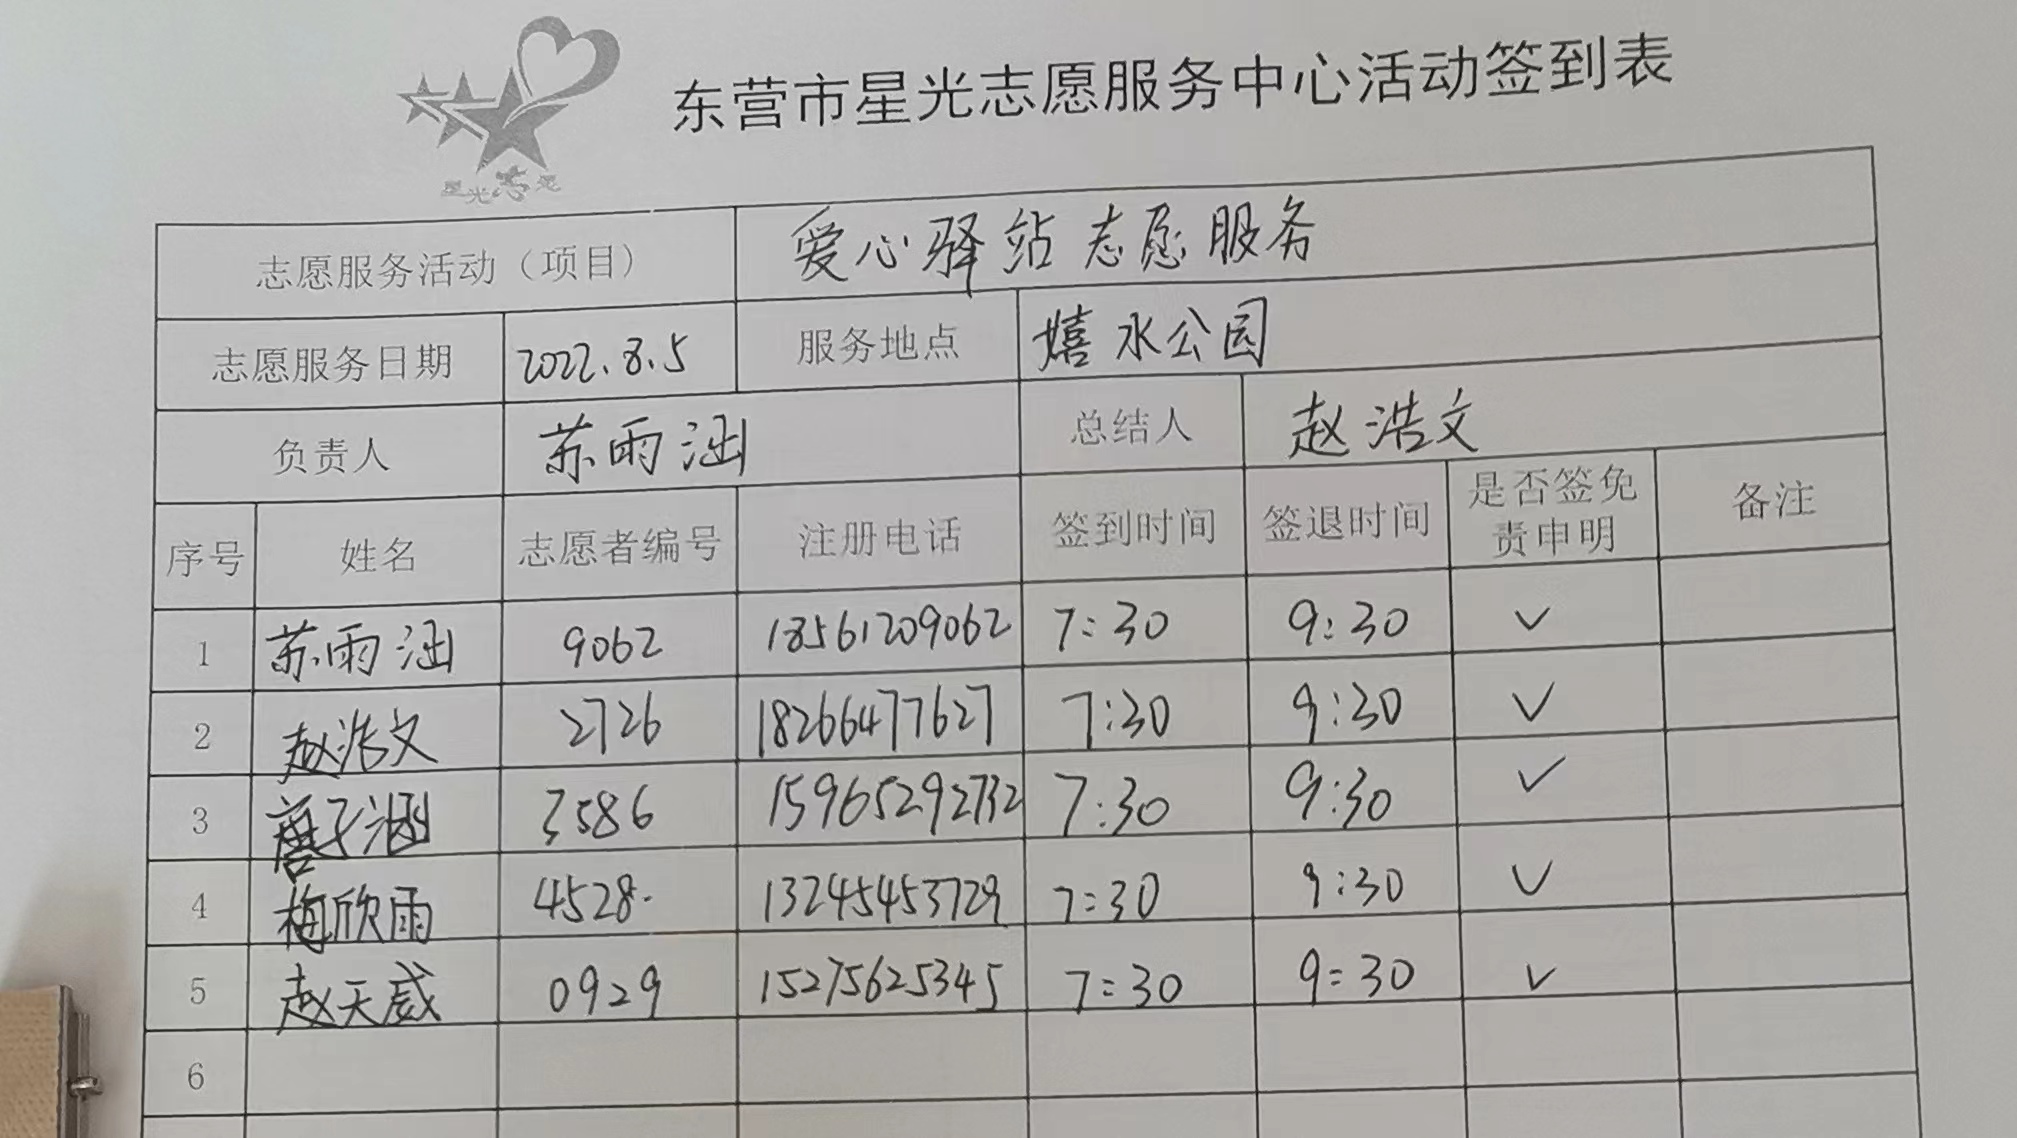 星光志愿
东营市星光志愿服务中心活动签到表
志愿服务活动（项目） 爱心驿站志愿服务
志愿服务日期 2022.8.5 服务地点 嬉水公园
负责人 苏雨涵 总结人 赵浩文
序号 姓名 志愿者编号 注册电话 签到时间 签退时间 是否签免 备注
责申明
1 苏雨涵 9062 18561209062 7:30 9:30 ✓
2 赵浩文 2726 18266477627 7:30 9:30 ✓
3 唐子涵 3586 15965292732 7:30 9:30 ✓
4 梅欣雨 4528. 13245453729 7:30 9:30 ✓
5 赵天威 0929 15275625345 7:30 9:30 ✓
6